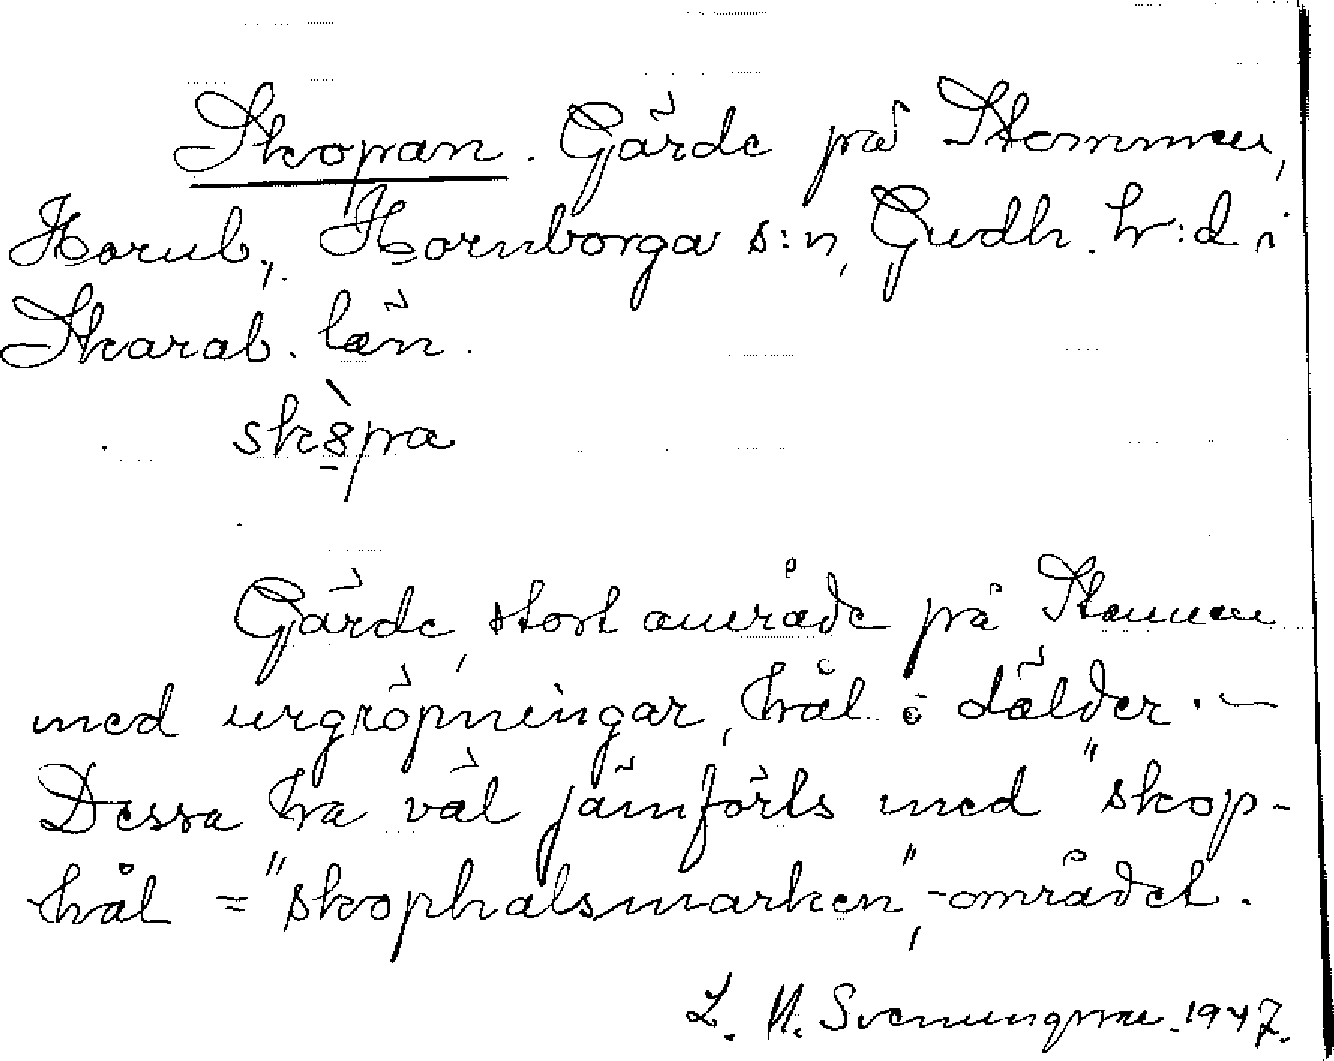 Skopan. Gärde på Stommen,
Hornb., Hornborga s:n, Gudh. h:d i
Skarab. län.
sk8̱̀pa
Gärde, stort område på Stommen
med urgröpningar, hål o dälder. —
Dessa ha väl jämförts med "skop-
hål = "skophålsmarken", -området.
L. N. Svenungsson. 1947.